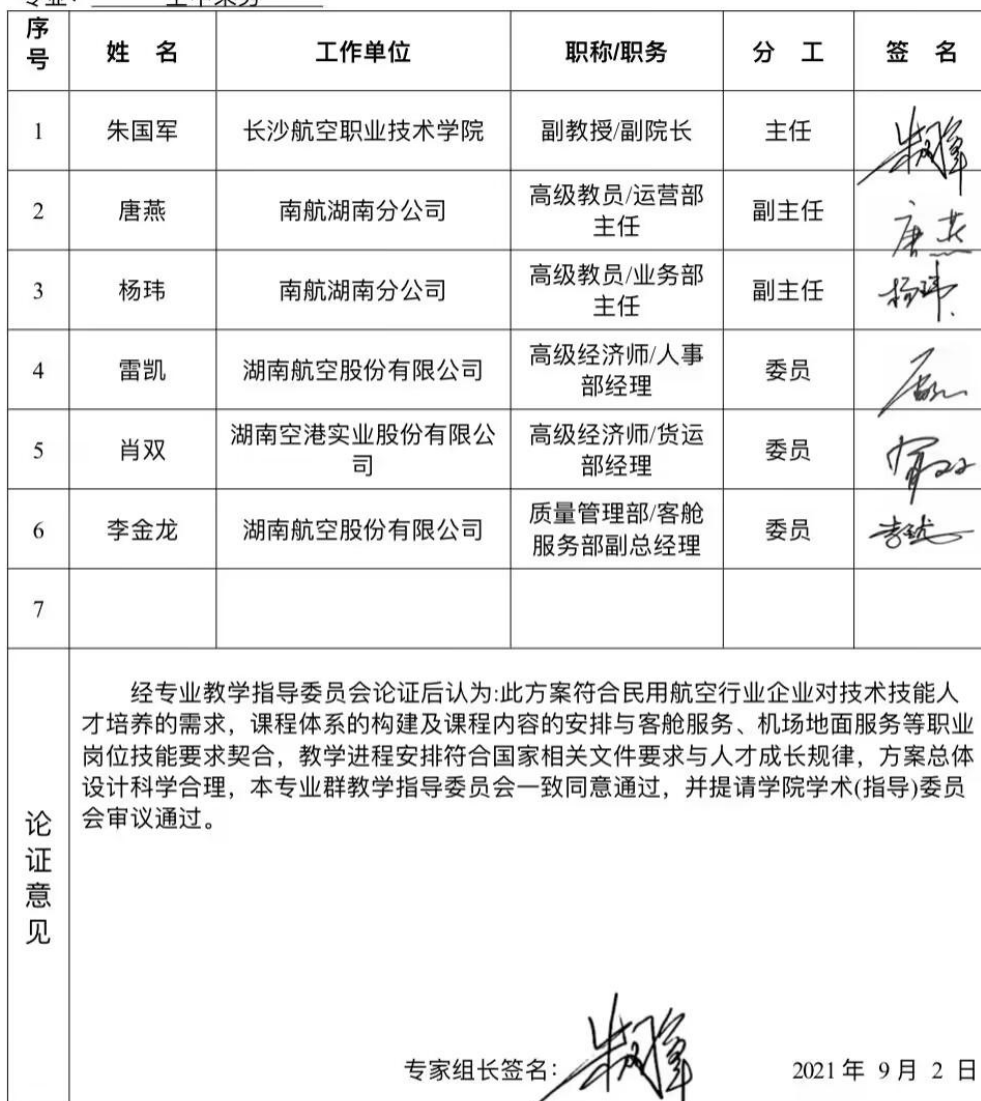 序号 姓 名 工作单位 职称/职务 分 工 签 名
1 朱国军 长沙航空职业技术学院 副教授/副院长 主任 朱国军
2 唐燕 南航湖南分公司 高级教员/运营部主任 副主任 唐燕
3 杨玮 南航湖南分公司 高级教员/业务部主任 副主任 杨玮
4 雷凯 湖南航空股份有限公司 高级经济师/人事部经理 委员
5 肖双 湖南空港实业股份有限公司 高级经济师/货运部经理 委员 肖双
6 李金龙 湖南航空股份有限公司 质量管理部/客舱服务部副总经理 委员
7
论证意见
经专业教学指导委员会论证后认为:此方案符合民用航空行业企业对技术技能人
才培养的需求，课程体系的构建及课程内容的安排与客舱服务、机场地面服务等职业
岗位技能要求契合，教学进程安排符合国家相关文件要求与人才成长规律，方案总体
设计科学合理，本专业群教学指导委员会一致同意通过，并提请学院学术(指导)委员
会审议通过。
专家组长签名: 朱国军 2021 年 9 月 2 日